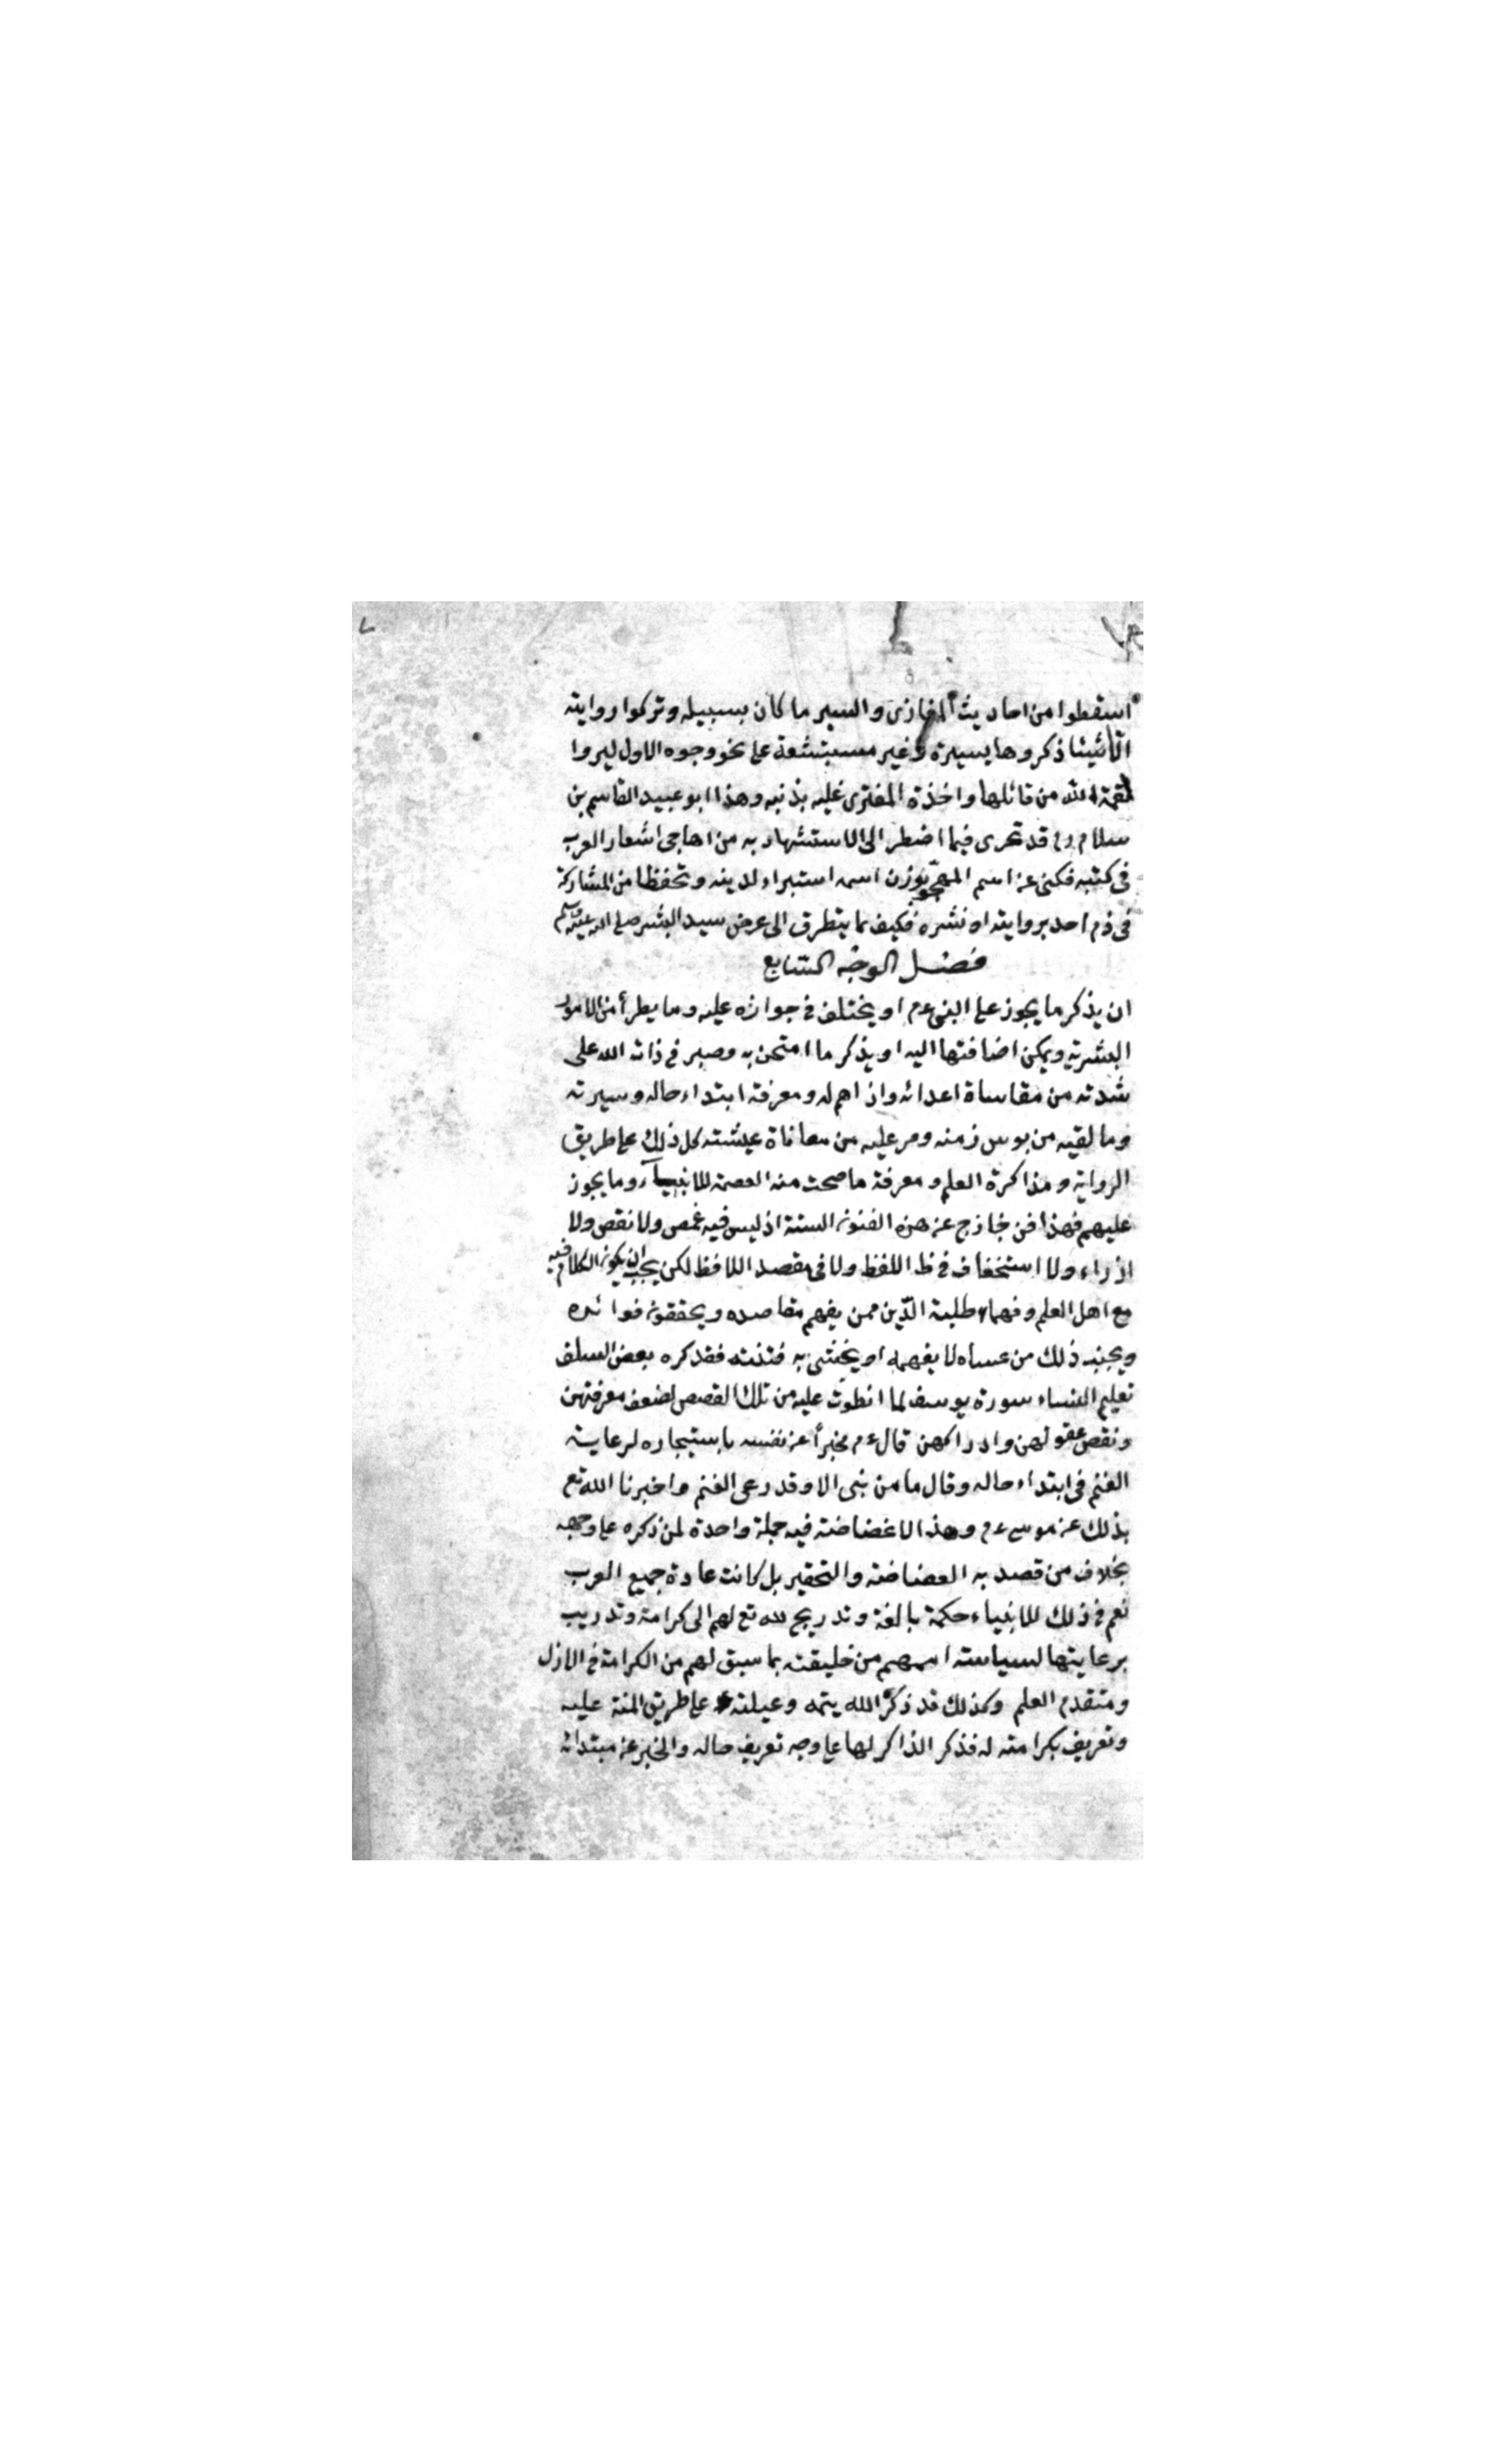 اسقطوا من احاديث المغازى والسير ما كان بسبيله وتركوا روايته
الا شيئا ذكروها يسيرة وغير مستبشعة على نحو وجوه الاول ليروا
نقمة الله من قائلها واخذة المفترى عليه بذنبه وهذا ابو عبيد القاسم بن
سلام رح قد تحرى فيما اضطر الى الاستشهاد به من اهاجى اشعار العرب
فى كتبه فكنى عن اسم المهجو بوزن اسمه استبراء لدينه وتحفظا من المشاركة
فى ذم احد بروايته او نشره فكيف بما يتطرق الى عرض سيد البشر صلى الله عليه وسلم
فصل الوجه السابع
ان يذكر ما يجوز على النبى ءم او يختلف فى جوازه عليه وما يطرأ من الامور
البشرية ويمكن اضافتها اليه او يذكر ما امتحن به وصبر فى ذات الله على
شدته من مقاساة اعدائه واذاهم له ومعرفة ابتداء حاله وسيرته
وما لقيه من بوس زمنه ومر عليه من معاناة عيشته كل ذلك على طريق
الرواية ومذاكرة العلم ومعرفة ما صحت منه العصمة للانبيآء وما يجوز
عليهم فهذا فن خارج عن هذه الفنون الستة اذ ليس فيه غمص ولا نقص ولا
ازراء ولا استخفاف فى ظ اللفظ ولا فى مقصد اللافظ لكن يجب ان يكون الكلام فيه
مع اهل العلم وفهماء طلبة الدّين ممن يفهم مقاصده ويحققون فوائده
ويجنب ذلك من عساه لا يفهمه او يخشى به فتنته فقد كره بعض السلف
تعليم النساء سورة يوسف لما انطوت عليه من تلك القصص لضعف معرفتهن
ونقص عقولهن وادراكهن قال ءم مخبرأ عن نفسه باستيجاره لرعاية
الغنم فى ابتداء حاله وقال ما من نبى الا وقد رعى الغنم واخبرنا الله تع
بذلك عن موسى ءم وهذا لا غضاضة فيه جملة واحدة لمن ذكره على وجهه
بخلاف من قصد به الغضاضة والتحقير بل كانت عادة جميع العرب
نعم فى ذلك للانبياء حكمة بالغة وتدريج لله تع لهم الى كرامة وتدريب
برعايتها لسياسة اممهم من خليقته بما سبق لهم من الكرامة فى الازل
ومتقدم العلم وكذلك قد ذكر الله يتمه وعيلته على طريق المنة عليه
وتعريف بكرامته له فذكر الذاكر لها على وجه تعريف حاله والخبر عن مبتدائه